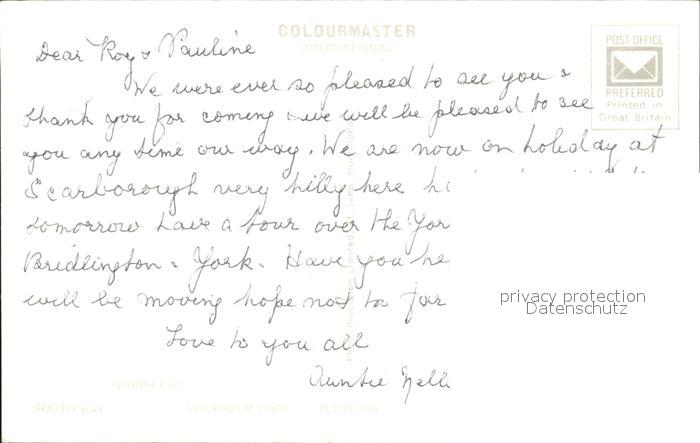 COLOURMASTER
INTERNATIONAL
POST OFFICE
PREFERRED
Printed in
Great Britain
Dear Roy & Pauline
We were ever so pleased to see you &
thank you for coming & we will be pleased to see
you any time our way. We are now on holiday at
Scarborough very hilly here
tomorrow have a tour over the Yor
Bridlington & York. Have you he
will be moving hope not to far
Love to you all
Auntie Nell
privacy protection
Datenschutz
NORTH BAY
SOUTH BAY PEASHOLM PARK